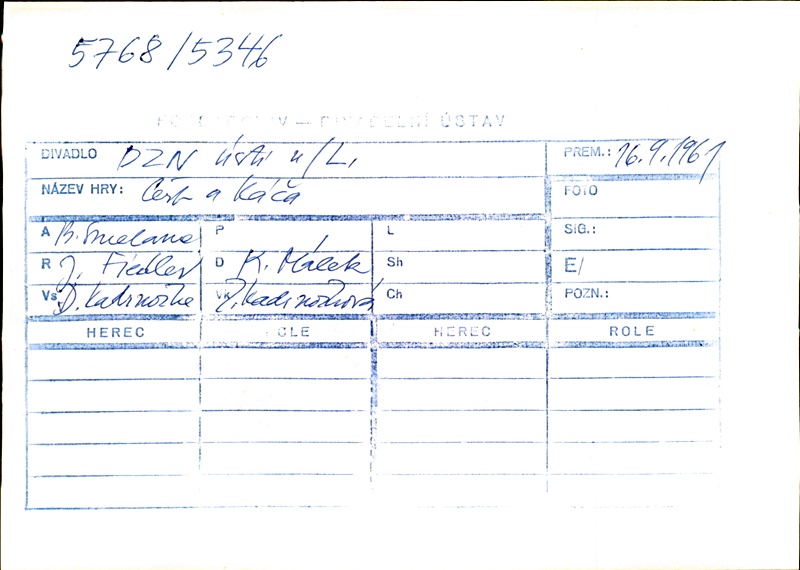 5768/5346
FOTOARCHIV — DIVADELNÍ ÚSTAV
DIVADLO DZN Ústí n/L. PREM.: 16.9.1961
NÁZEV HRY: Čert a Káča FOTO
A B. Smetana P L SIG.:
R J. Fiedler D K. Málek Sh E/
Vs D. Kadrnožka Vk Z. Kadrnožková Ch POZN.:
HEREC ROLE HEREC ROLE